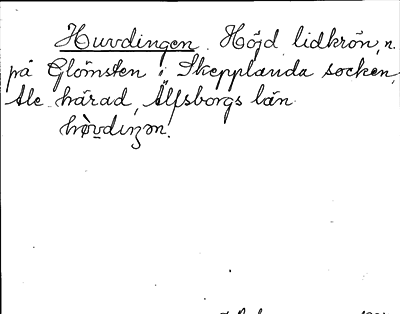 Huvdingen. Höjd lidkrön, n.
på Glömsten i Skepplanda socken,
Ale härad, Älfsborgs län.